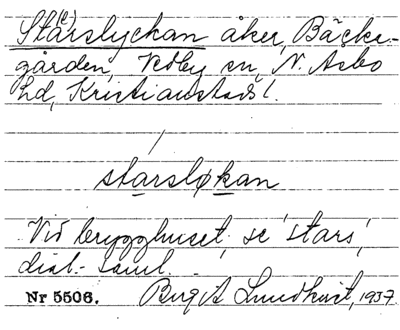 Sta(e)rslyckan åker, Bäcka-
gården, Vedby sn, N. Åsbo
hd, Kristianstads l.
starsløkan
Vid brygghuset, se 'stars',
dial.-saml.
Nr 5506. Birgit Lundkvist, 1937